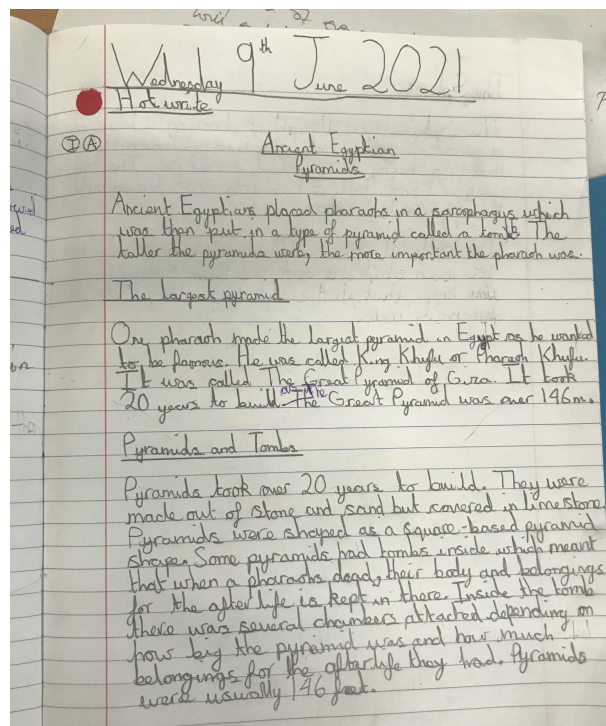 Wednesday 9th June 2021
Hot write
I A
Ancient Egyptian
Pyramids
Ancient Egyptians placed pharaohs in a sarcophagus which
was then put in a type of pyramid called a tomb. The
taller the pyramids were, the more important the pharaoh was.
The largest pyramid
One pharaoh made the largest pyramid in Egypt as he wanted
to be famous. He was called King Khufu or Pharaoh Khufu.
It was called The Great Pyramid of Giza. It took
20 years to build. The Great Pyramid was over 146m.
Pyramids and Tombs
Pyramids took over 20 years to build. They were
made out of stone and sand but covered in limestone.
Pyramids were shaped as a square-based pyramid
shape. Some pyramids had tombs inside which meant
that when a pharaohs dead, their body and belongings
for the afterlife is kept in there. Inside the tomb
there was several chambers attached depending on
how big the pyramid was and how much
belongings for the afterlife they had. Pyramids
were usually 146 feet.